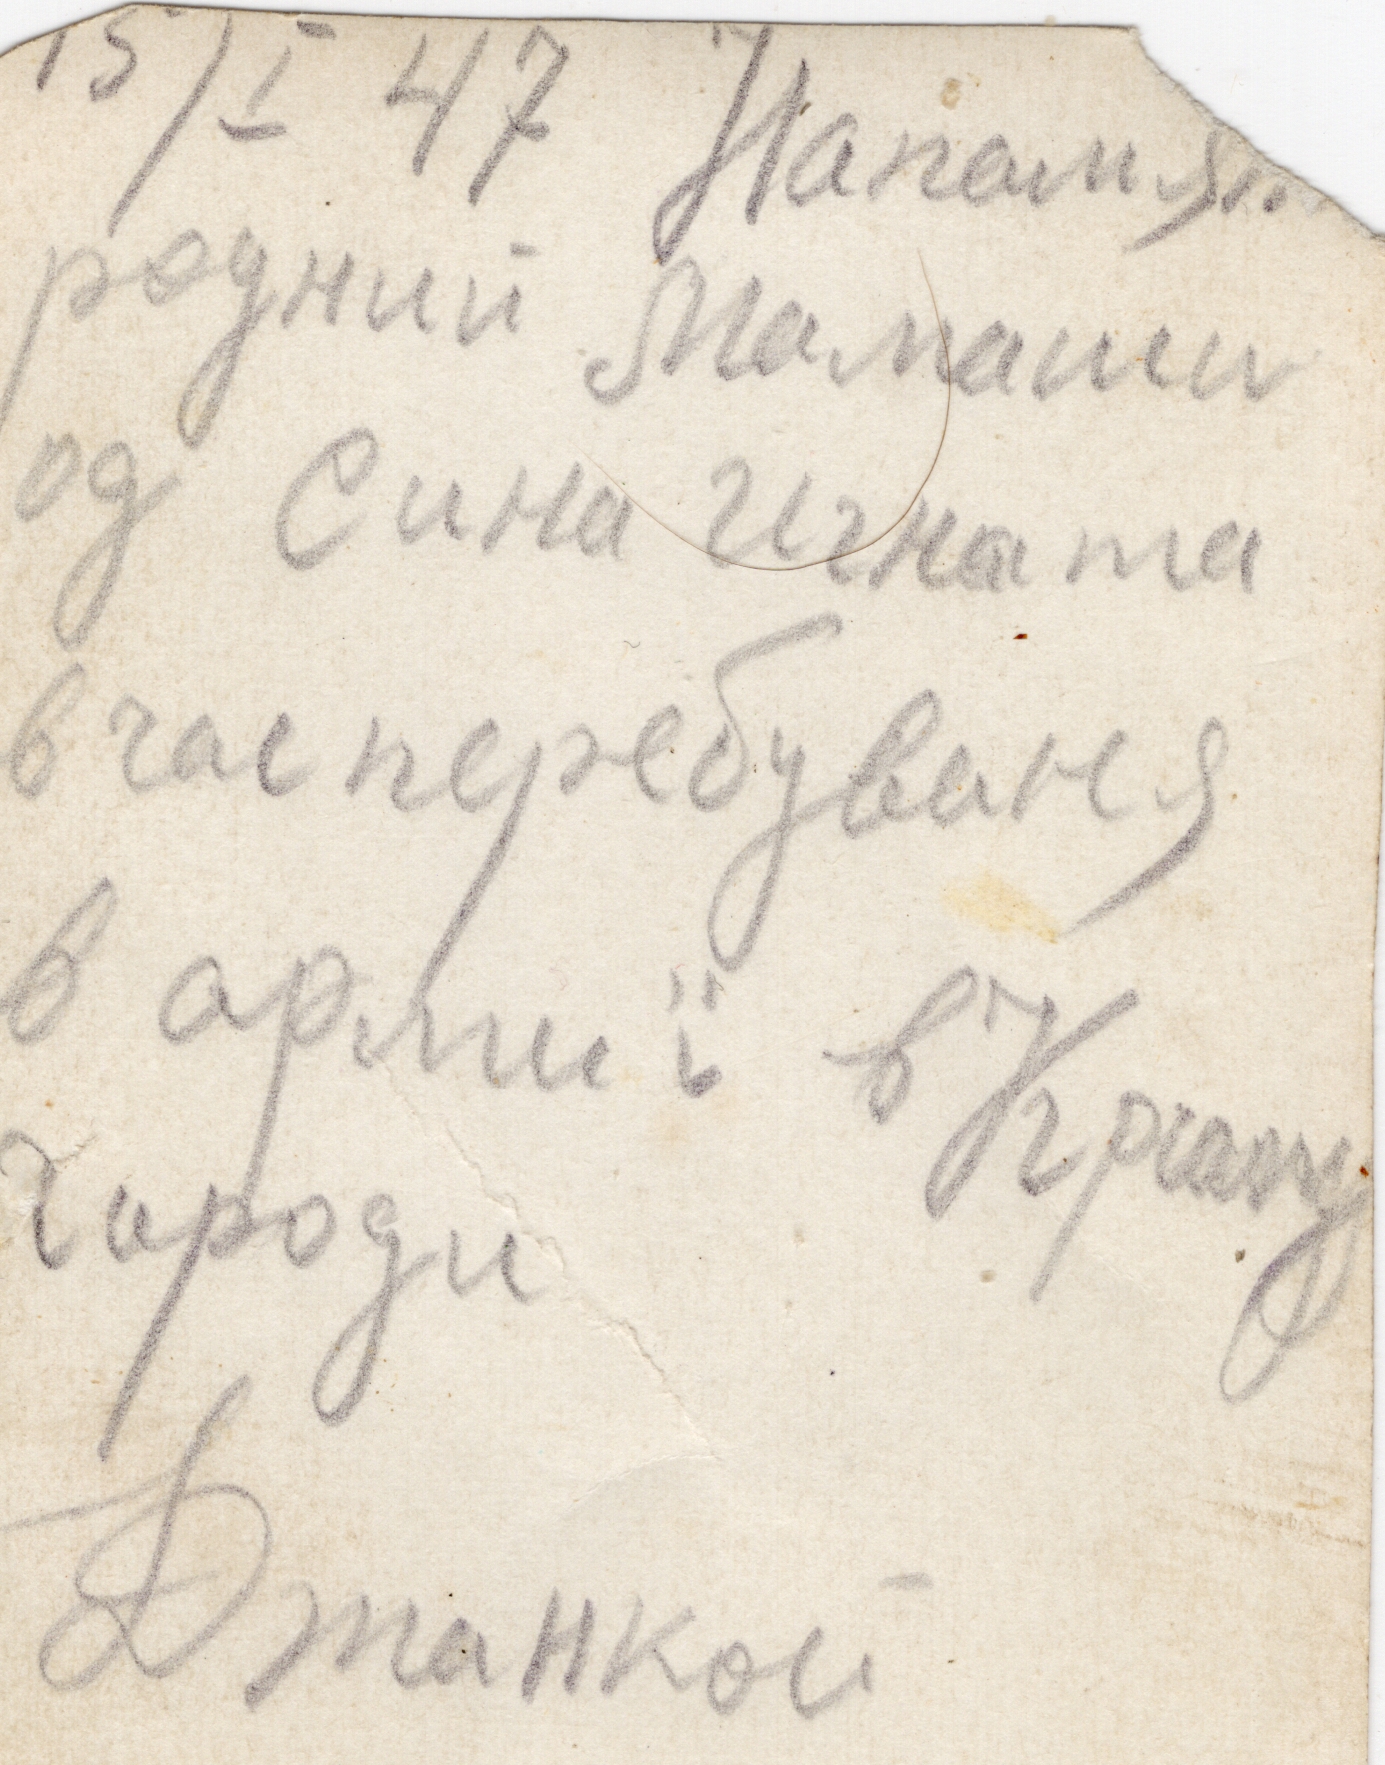 15/I 47 Напомя
родний Мамаши
од Сина Игната
в час перебуваня
в армиї в Криму
городи
Джанкой